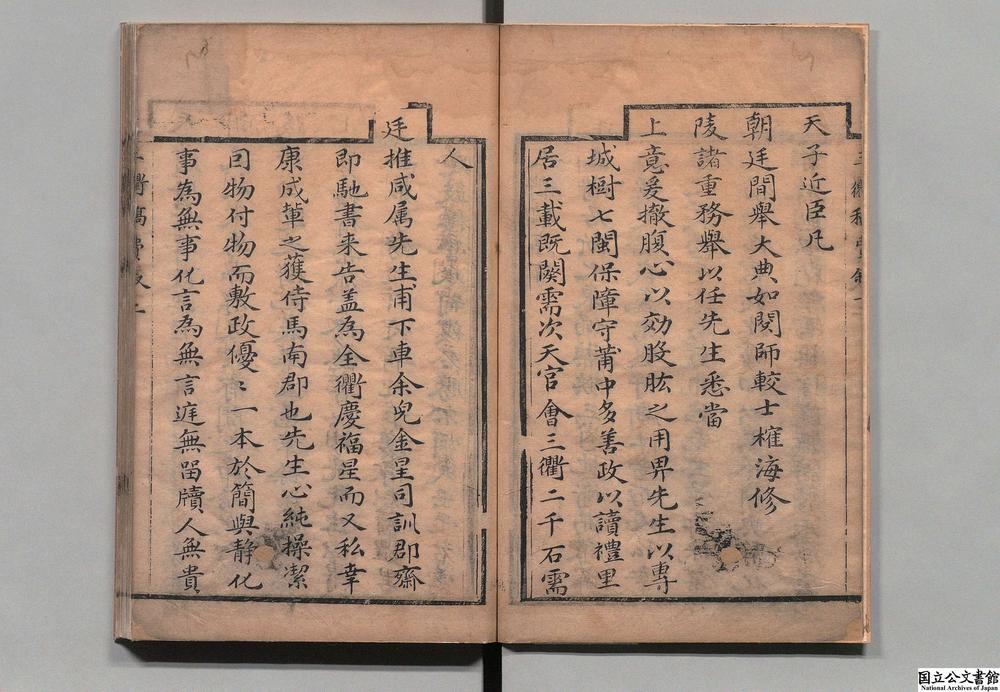 天子近臣凡
朝廷間舉大典如閱師較士榷海修
陵諸重務舉以任先生悉當
上意爰撤腹心以効股肱之用畀先生以專
城樹七閩保障守莆中多善政以讀禮里
居三載既闋需次天官會三衢二千石需
人
廷推咸属先生甫下車余兒金星司訓郡齋
即馳書来告盖為全衢慶福星而又私幸
康成軰之獲侍馬南郡也先生心純操潔
因物付物而敷政優〻一本於簡與静化
事為無事化言為無言遅無畱牘人無貴
国立公文書館
National Archives of Japan